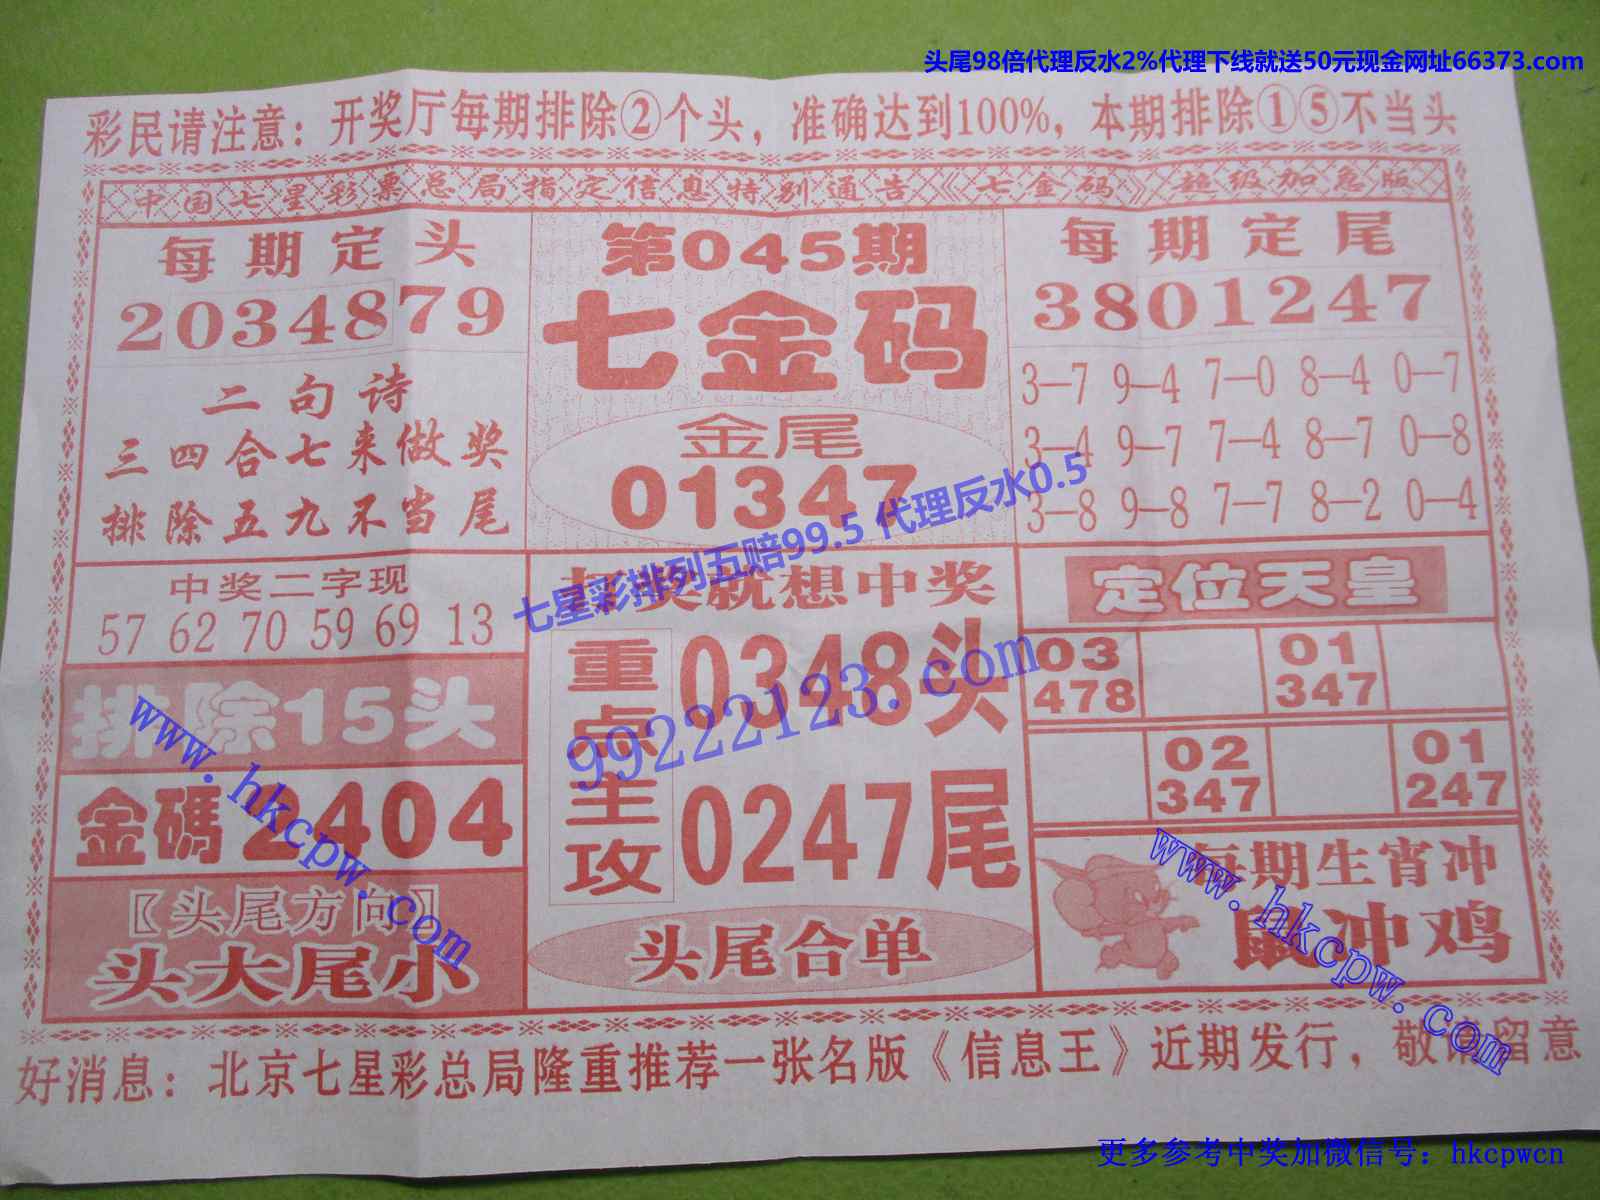 头尾98倍代理反水2%代理下线就送50元现金网址66373.com
彩民请注意：开奖厅每期排除②个头，准确达到100%，本期排除①⑤不当头
中国七星彩票总局指定信息特别通告《七金码》超级加急版
每期定头
2034879
二句诗
三四合七来做奖
排除五九不当尾
中奖二字现
57 62 70 59 69 13
排除15头
金碼 2404
〖头尾方向〗
头大尾小
第045期
七金码
金尾
01347
奖就想中奖
重点主攻
0348头
0247尾
头尾合单
每期定尾
3801247
3—7 9—4 7—0 8—4 0—7
3—4 9—7 7—4 8—7 0—8
3—8 9—8 7—7 8—2 0—4
定位天皇
03 01
478 347
02 01
347 247
每期生肖冲
鼠冲鸡
好消息：北京七星彩总局隆重推荐一张名版《信息王》近期发行，敬请留意
七星彩排列五赔99.5 代理反水0.5
99222123.com
www.hkcpw.com
www.hkcpw.com
更多参考中奖加微信号：hkcpwcn